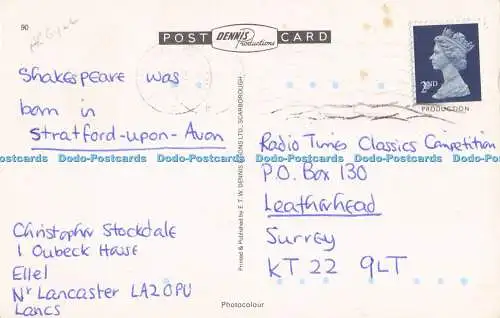 90
POST DENNIS Productions CARD
2ND
PRODUCTION
Shakespeare was
born in
Stratford-upon-Avon
Radio Times Classics Competition
P.O. Box 130
Leatherhead
Surrey
KT22 9LT
Dodo-Postcards Dodo-Postcards Dodo-Postcards Dodo-Postcards Dodo-Postcards Dodo-Postcards
Christopher Stockdale
1 Oubeck House
Ellel
Nr Lancaster LA2 0PU
Lancs
Printed & Published by E. T. W. DENNIS & SONS LTD., SCARBOROUGH
Photocolour